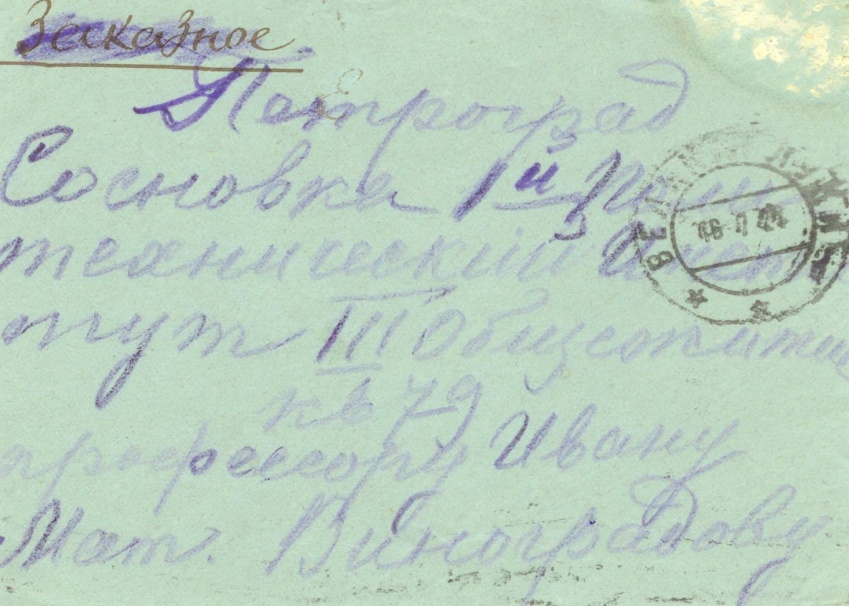 Заказное
Петроград
Сосновка 1й Поли
технический Инсти
тут III Общежитие
кв 79
профессору Ивану
Мат. Виноградову